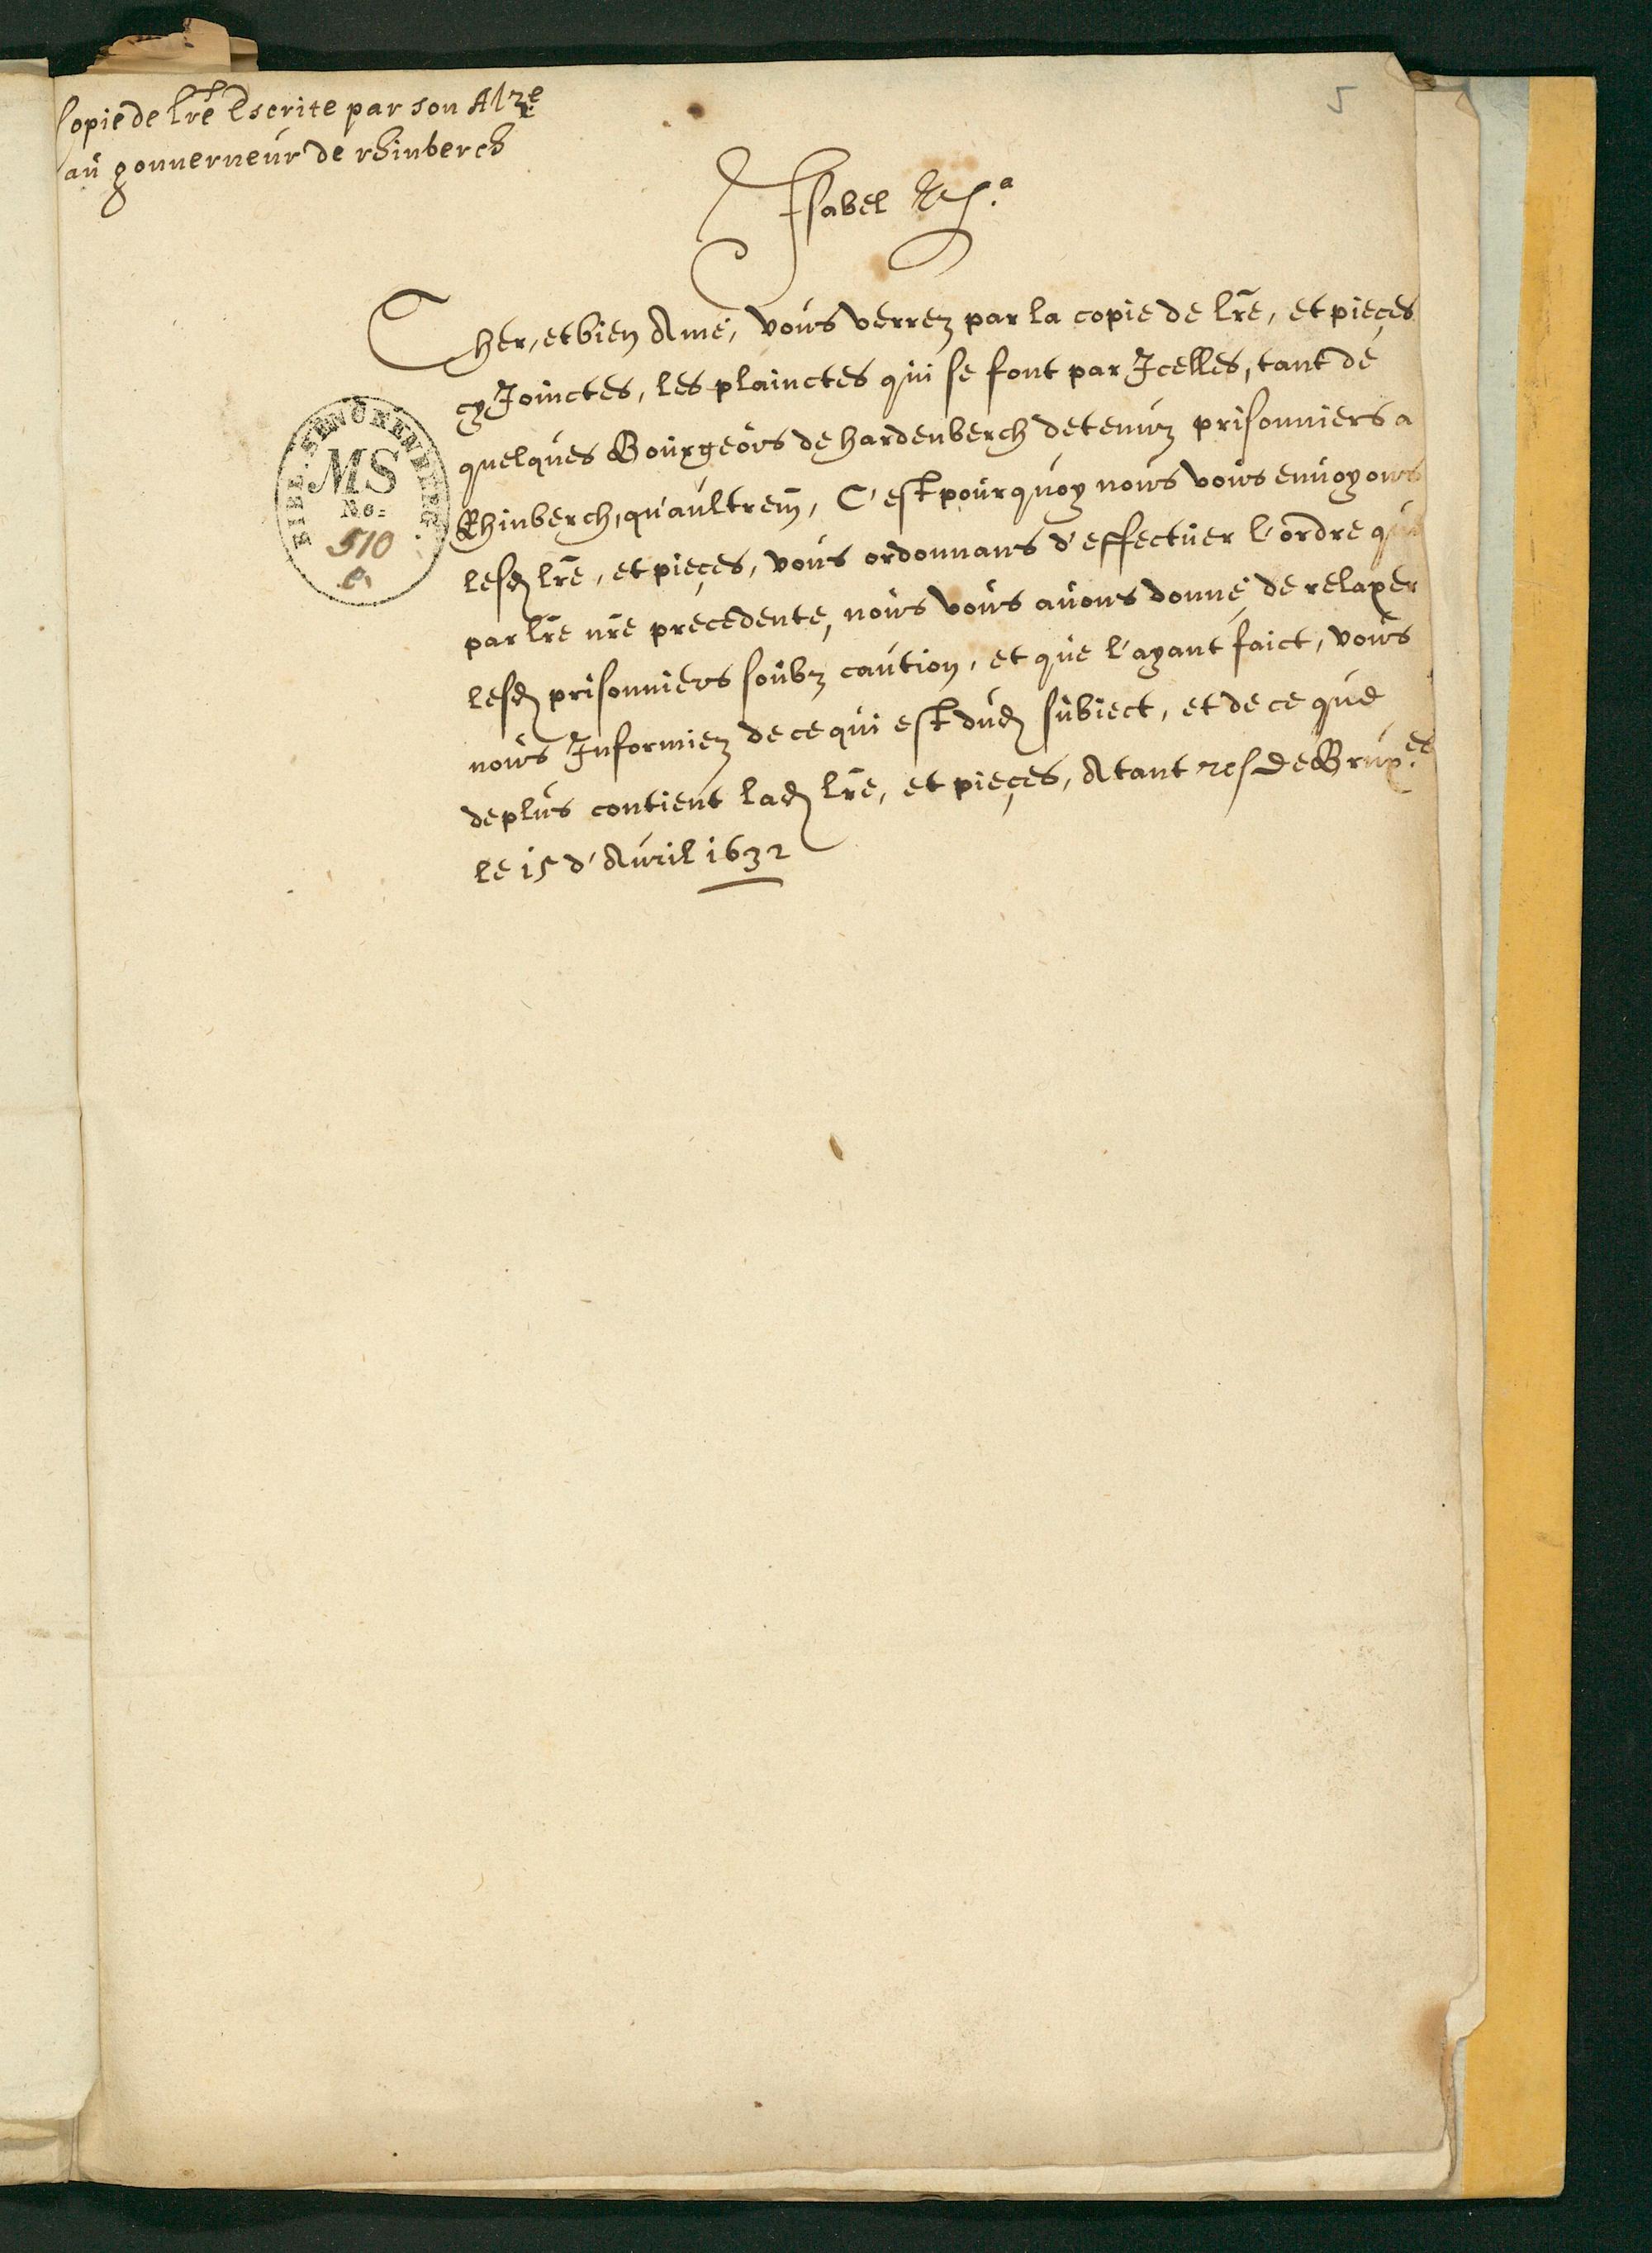 Copie de lr̃e Escrite par son Alz.e
au gouuerneur de rhinberch
5
Isabel
Cher, et bien Amé, vous verrez par la copie de lr̃e, et pieçes
cy Joinctes, les plainctes qui se font par Icelles, tant de
quelques Bourgeois de hardenberch detenuz prisonniers a
Rhinberch, qu'aultrem̃, C'est pourquoy nous vous enuoyons
lesd lr̃e, et pieçes, vous ordonnans d'effectuer l'ordre que
par lr̃e nr̃e precedente, nous vous auons donné, de relaxer
lesd prisonniers soubz caution, et que l'ayant faict, vous
nous Informiez de ce qui est dud subiect, et de ce que
de plus contient lad lr̃e, et pieçes, A tant de Brux.es
le 15 d'Auril 1632
MS
No:
510
e.